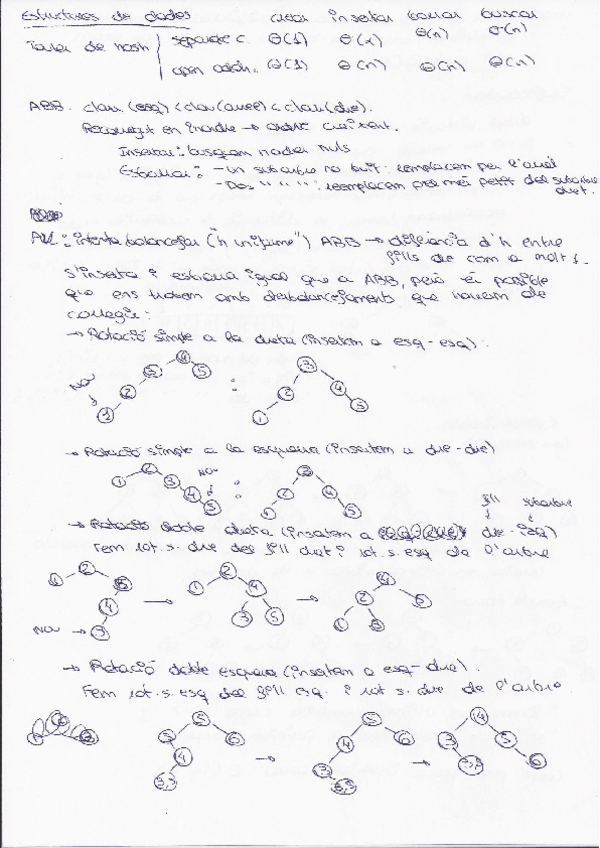 Estructures de dades crear inserir borrar buscar
Taules de hash separate c. Θ(1) Θ(1) Θ(n) Θ(n)
open addr. Θ(1) Θ(n) Θ(n) Θ(n)
ABB. clau(esq) < clau(arrel) < clau(dre).
Recorregut en inordre → ordre creixent.
Insertar: busquem nodes nuls
Esborrar: - un subarbre no buit: reemplacem per l'arrel
- Dos " " " : reemplacem pel més petit del subarbre dret.
AVL: intenta balancejar ("h uniforme") ABB → diferència d'h entre
fills de com a molt 1.
S'inserta i esborra igual que a ABB, però és possible
que ens trobem amb desbalancejaments que haurem de
corregir:
→ Rotació simple a la dreta (insertem a esq-esq):
4
3 5
NOU 2
1
3
2 4
1 5
→ Rotació simple a la esquerra (insertem a dre-dre)
2 NOU
1 3
4
5
3
2 4
1 5
fill subarbre
→ Rotació doble dreta (insertem a dre-esq)
Fem rot. s. dre del fill dret i rot. s. esq de l'arbre
2
1 5
4
NOU → 3
→
2
1 4
3 5
→
4
2 5
1 3
→ Rotació doble esquerra (insertem a esq-dre).
Fem rot. s. esq del fill esq. i rot s. dre de l'arbre.
5
6
4
→
5
4 6
3
→
4
3 5
6